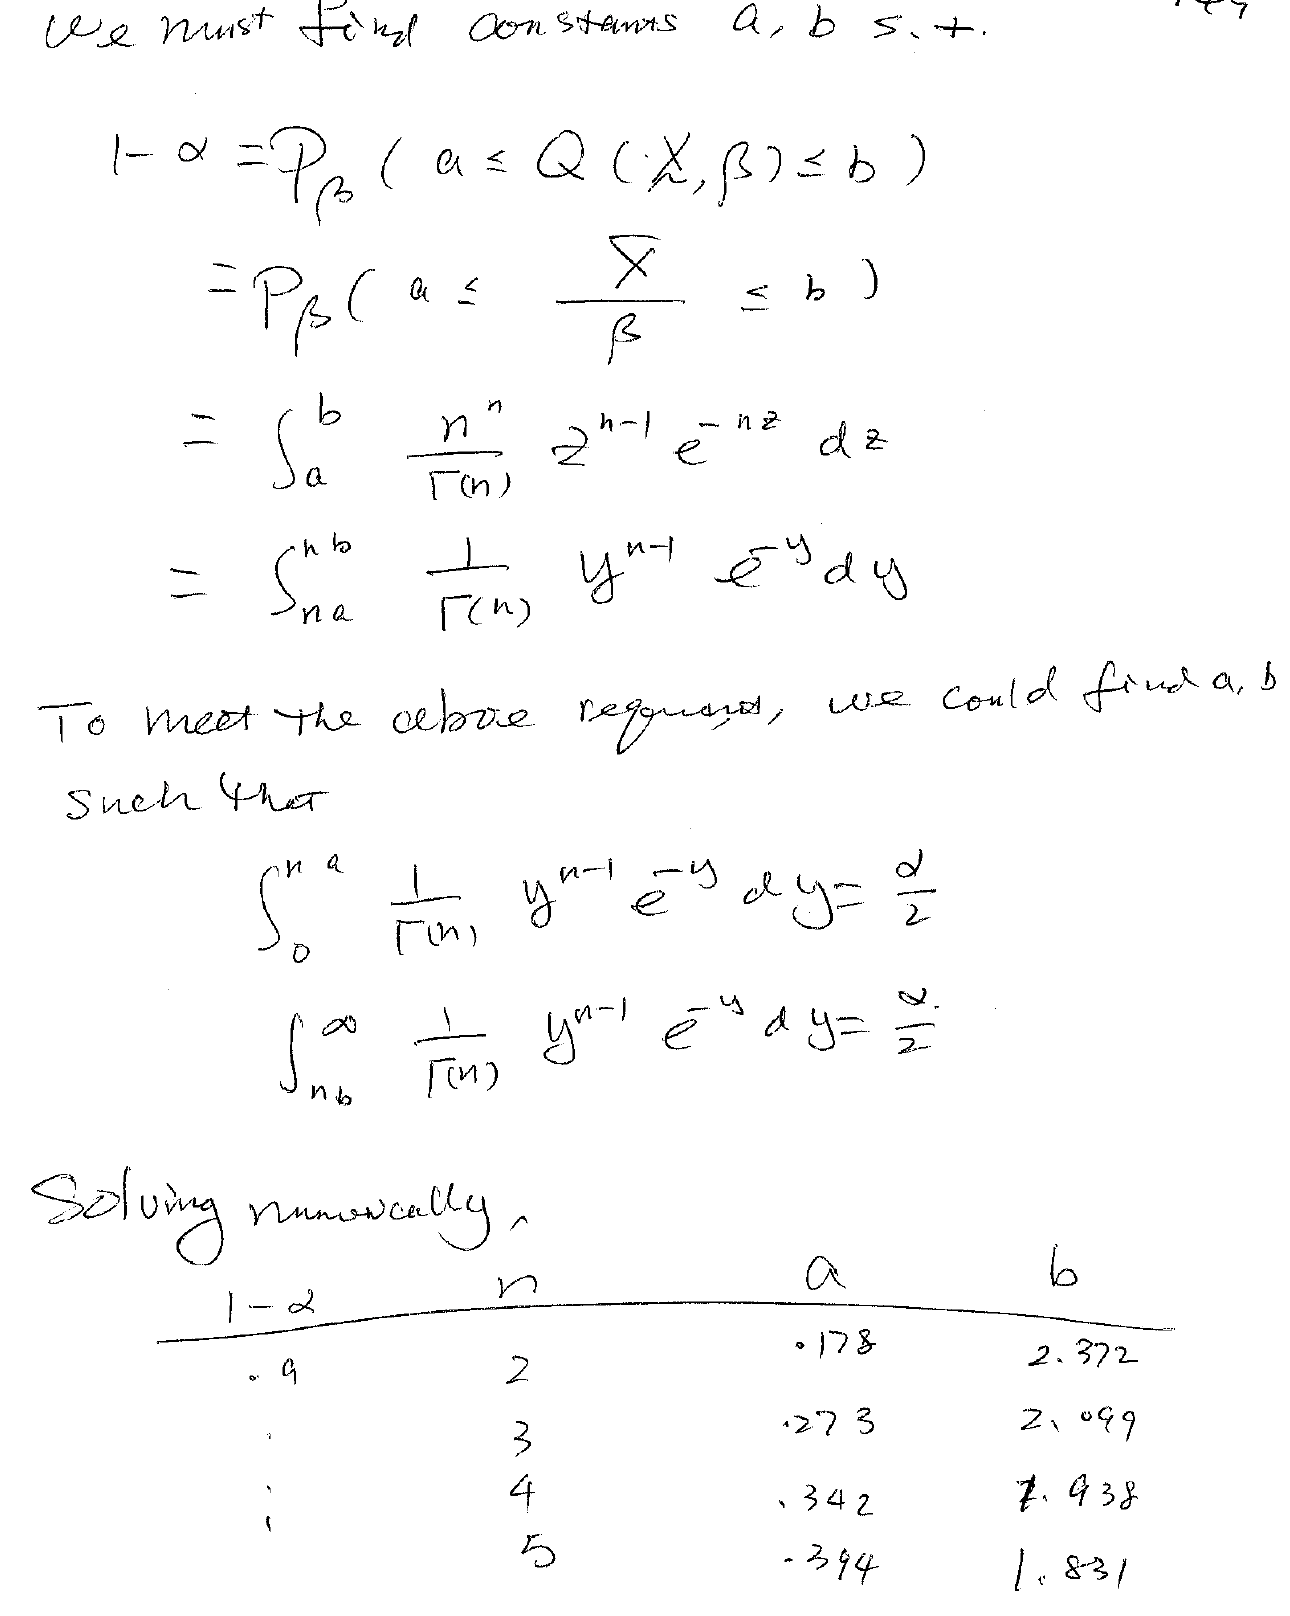 We must find constants a, b s.t.
1-α = P_β ( a ≤ Q(X̰, β) ≤ b )
= P_β ( a ≤ X̄ / β ≤ b )
= ∫_a^b n^n / Γ(n) z^{n-1} e^{-nz} dz
= ∫_{na}^{nb} 1 / Γ(n) y^{n-1} e^{-y} dy
To meet the above, we could find a, b
such that
∫_0^{na} 1 / Γ(n) y^{n-1} e^{-y} dy = α / 2
∫_{nb}^∞ 1 / Γ(n) y^{n-1} e^{-y} dy = α / 2
Solving numerically,
1-α n a b
.9 2 .178 2.372
3 .273 2.099
4 .342 1.938
5 .394 1.831